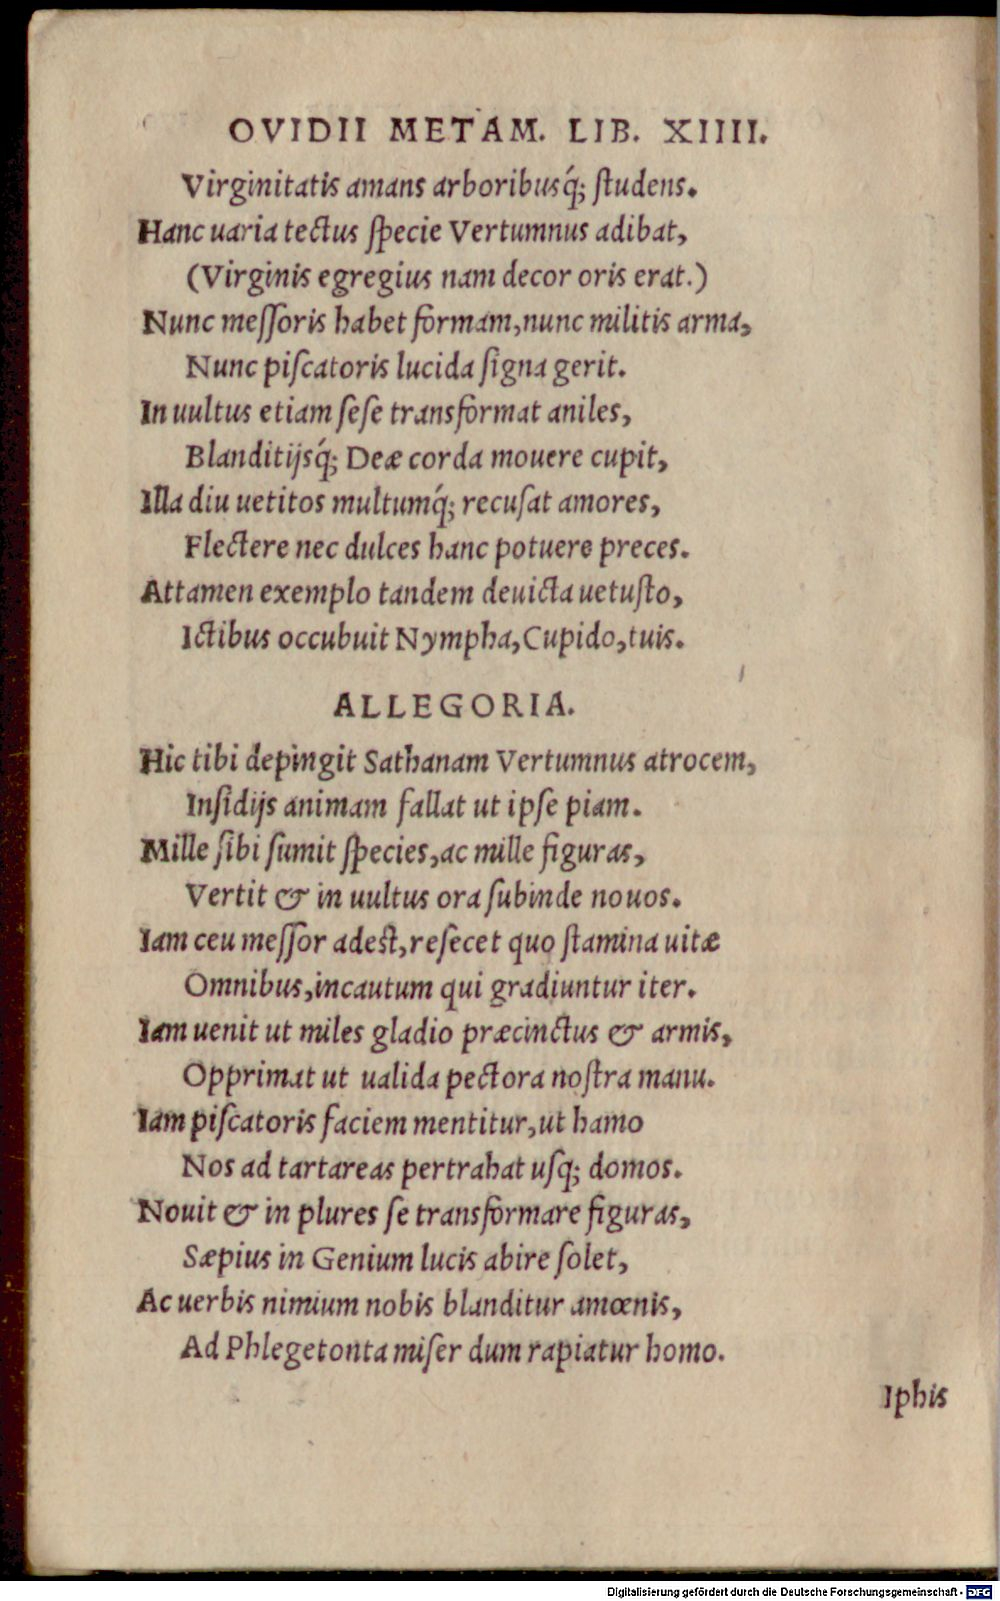 OVIDII METAM. LIB. XIIII.
Virginitatis amans arboribusq́; ſtudens.
Hanc uaria tectus ſpecie Vertumnus adibat,
(Virginis egregius nam decor oris erat.)
Nunc meſſoris habet formam,nunc militis arma,
Nunc piſcatoris lucida ſigna gerit.
In uultus etiam ſeſe transformat aniles,
Blanditijsq́; Deæ corda mouere cupit,
Illa diu uetitos multumq́; recuſat amores,
Flectere nec dulces hanc potuere preces.
Attamen exemplo tandem deuicta uetuſto,
Ictibus occubuit Nympha,Cupido,tuis.
ALLEGORIA.
Hic tibi depingit Sathanam Vertumnus atrocem,
Inſidijs animam fallat ut ipſe piam.
Mille ſibi ſumit ſpecies,ac mille figuras,
Vertit & in uultus ora ſubinde nouos.
Iam ceu meſſor adeſt,reſecet quo ſtamina uitæ
Omnibus,incautum qui gradiuntur iter.
Iam uenit ut miles gladio præcinctus & armis,
Opprimat ut ualida pectora noſtra manu.
Iam piſcatoris faciem mentitur,ut hamo
Nos ad tartareas pertrahat uſq; domos.
Nouit & in plures ſe transformare figuras,
Sæpius in Genium lucis abire ſolet,
Ac uerbis nimium nobis blanditur amœnis,
Ad Phlegetonta miſer dum rapiatur homo.
Iphis
Digitalisierung gefördert durch die Deutsche Forschungsgemeinschaft - DFG